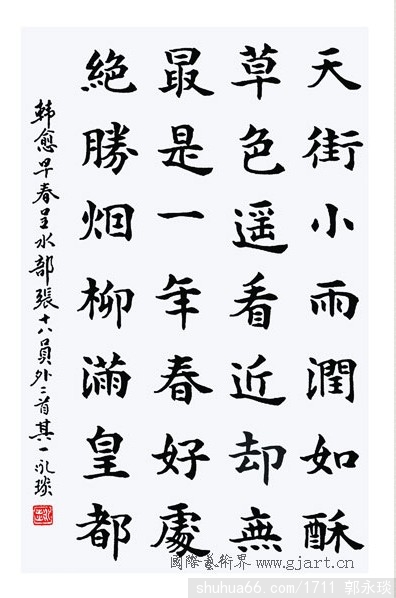 天街小雨潤如酥
草色遥看近却無
最是一年春好處
絶勝烟柳滿皇都
韩愈早春呈水部張十八員外二首其一 永琰
國際藝術界 www.gjart.cn
shuhua66.com/1711 郭永琰